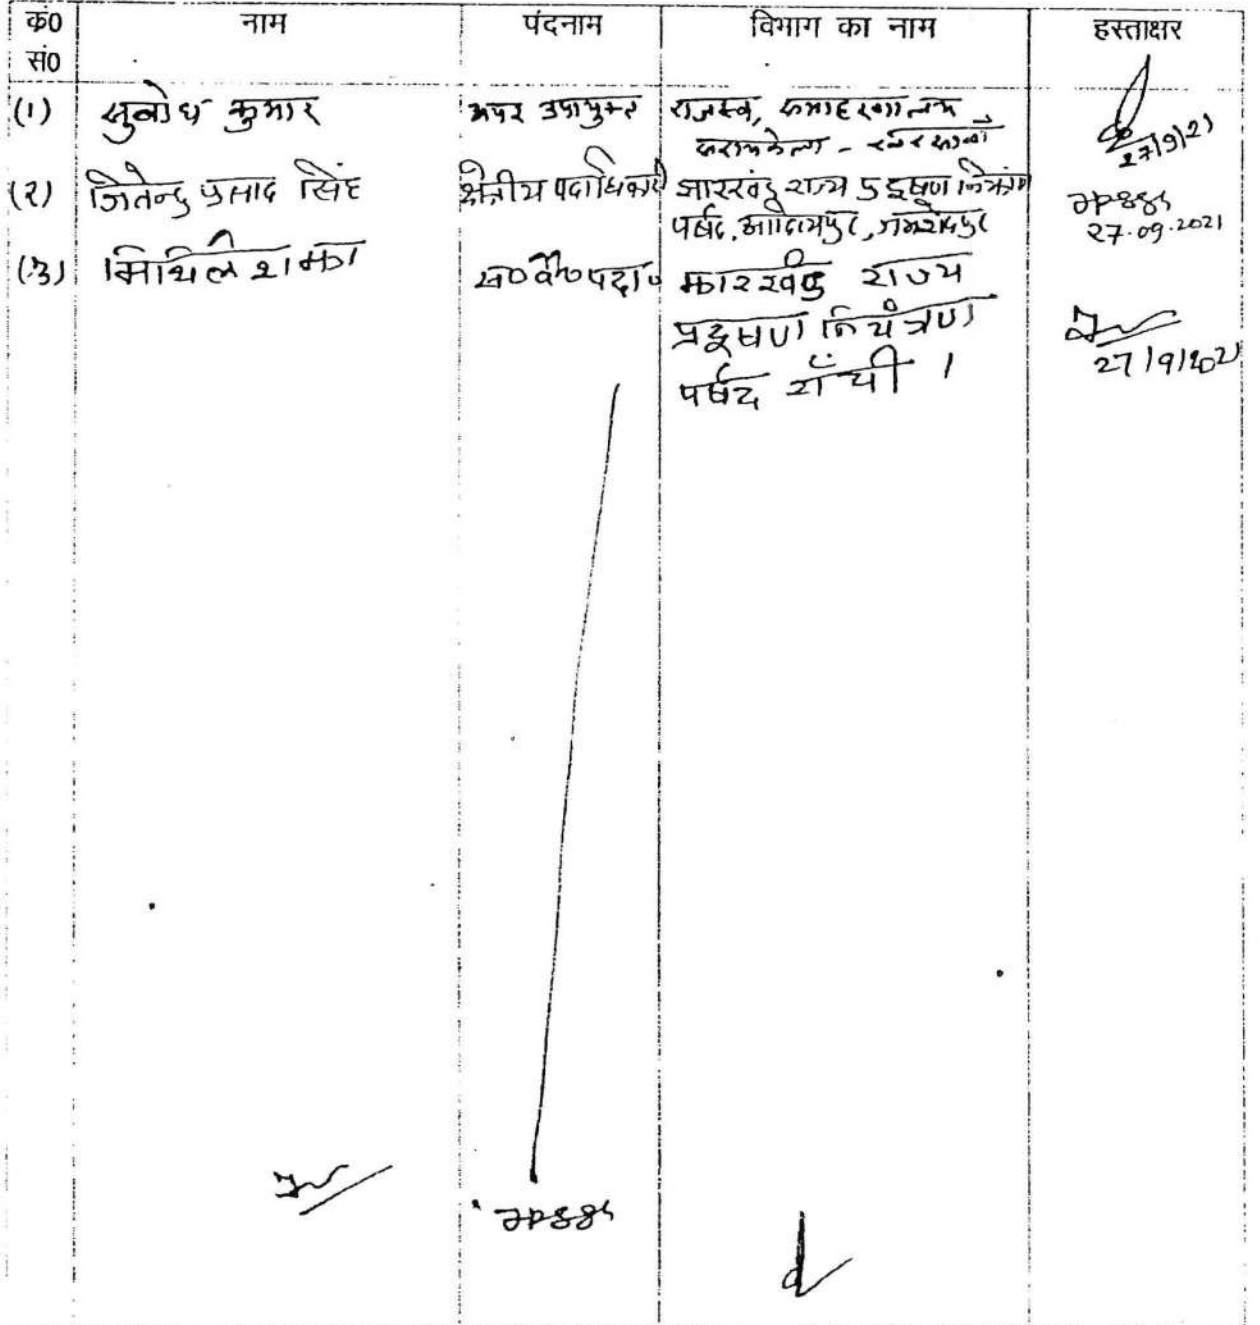 कं0 नाम पंदनाम विभाग का नाम हस्ताक्षर
सं0
(1) सुबोध कुमार अपर उपायुक्त राजस्व, समाहरणालय
सरायकेला - खरसावाँ
27/9/21
(2) जितेन्द्र प्रसाद सिंह क्षेत्रीय पदाधिकारी झारखंड राज्य प्रदूषण नियंत्रण
पर्षद, आदित्यपुर, जमशेदपुर
27.09.2021
(3) मिथिलेश झा स0 वै0 पदा0 झारखंड राज्य
प्रदूषण नियंत्रण
पर्षद राँची ।
27/9/2021